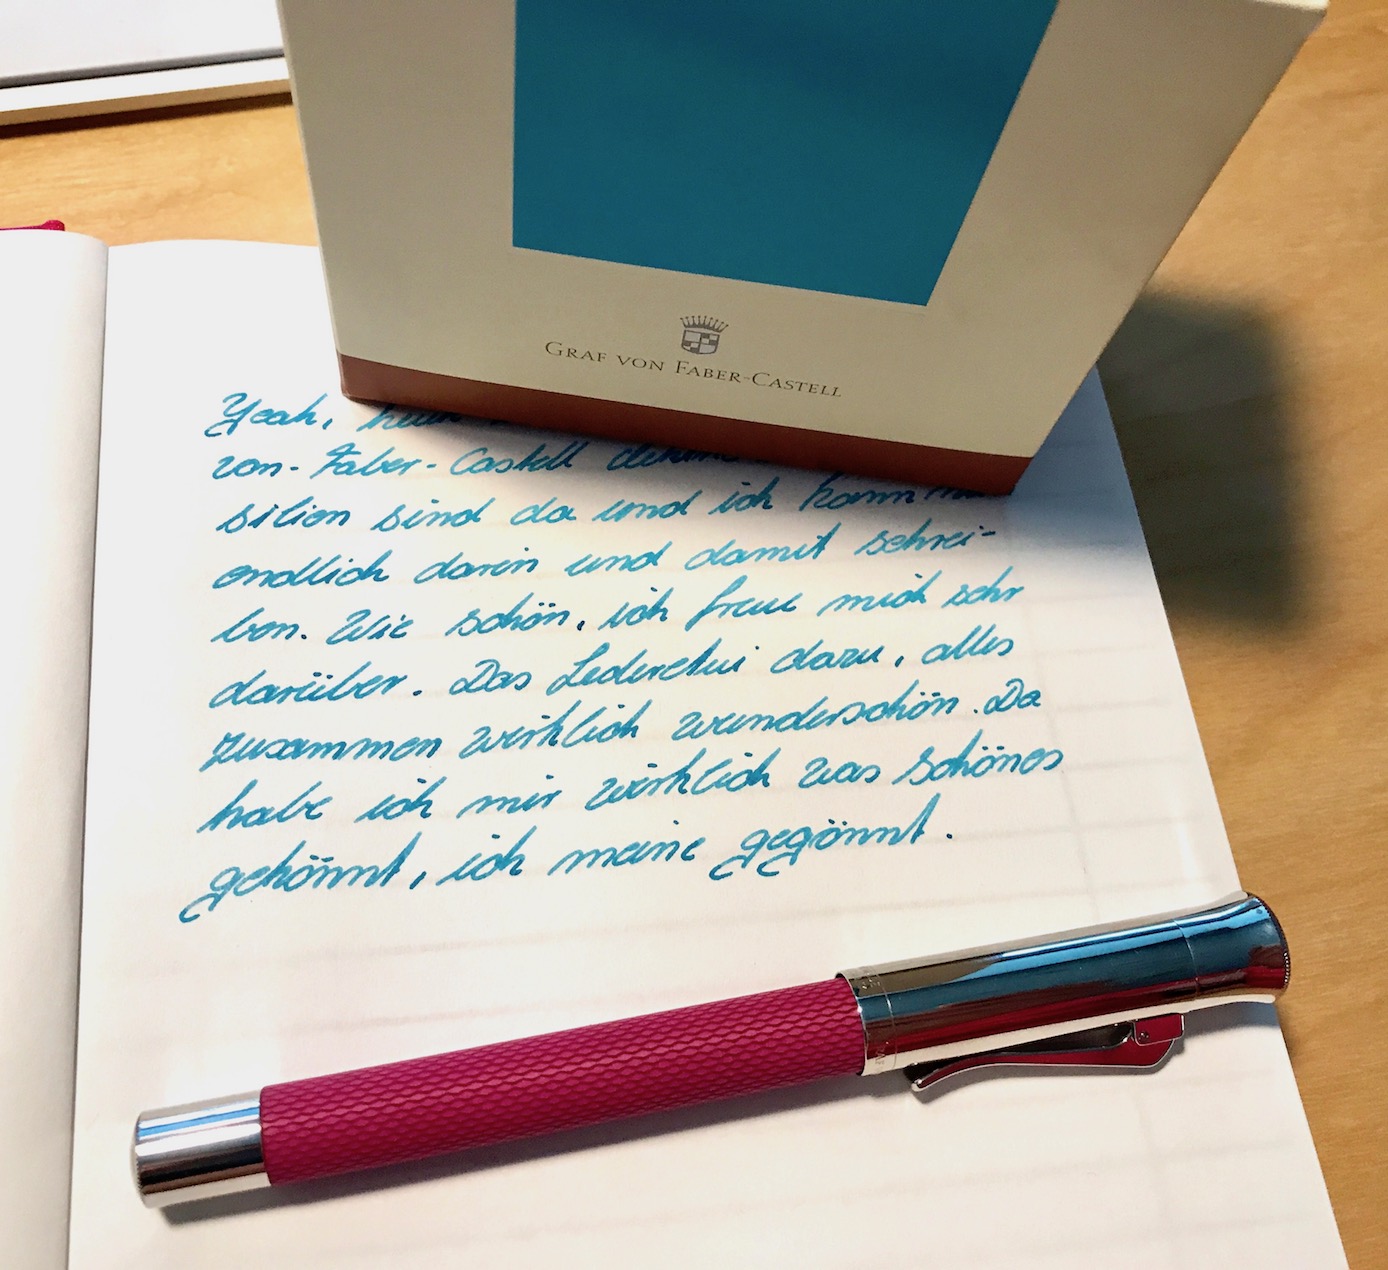 GRAF VON FABER-CASTELL
Yeah,
von-Faber-Castell
silien sind da und ich kann
endlich darin und damit schrei-
ben. Wie schön, ich freue mich sehr
darüber. Das Lederetui dazu, alles
zusammen wirklich wunderschön. Da
habe ich mir wirklich was schönes
gekönnt, ich meine gegönnt.